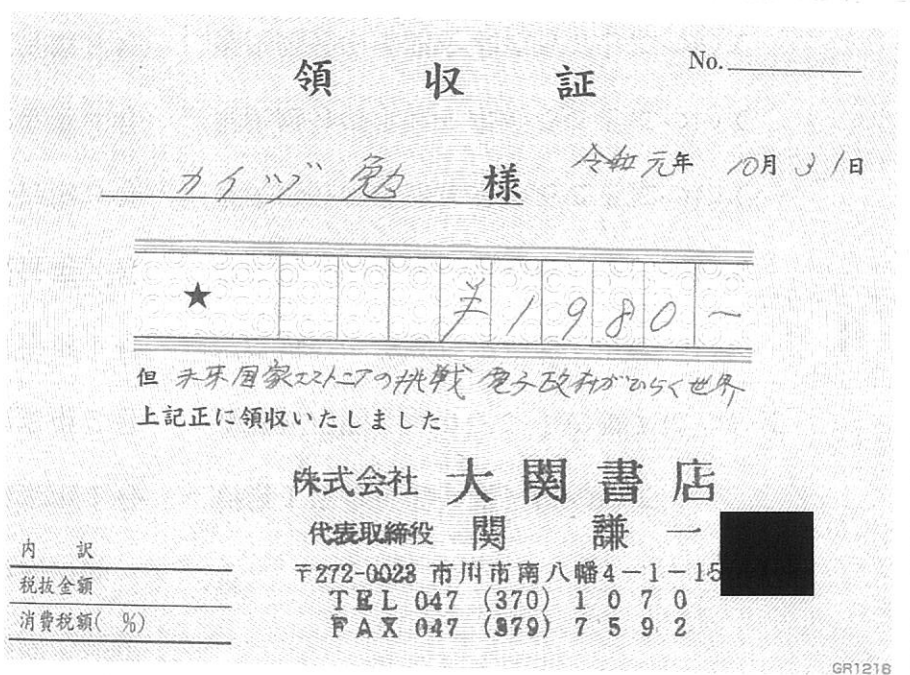 領 収 証
No.
カイヅ 勉 様
令和元年 10月31日
★ ¥1980-
但 未来国家エストニアの挑戦 電子政府がひらく世界
上記正に領収いたしました
株式会社 大関書店
代表取締役 関 謙一
〒272-0023 市川市南八幡4-1-15
TEL 047 (370) 1070
FAX 047 (379) 7592
内 訳
税抜金額
消費税額( %)
GR1216